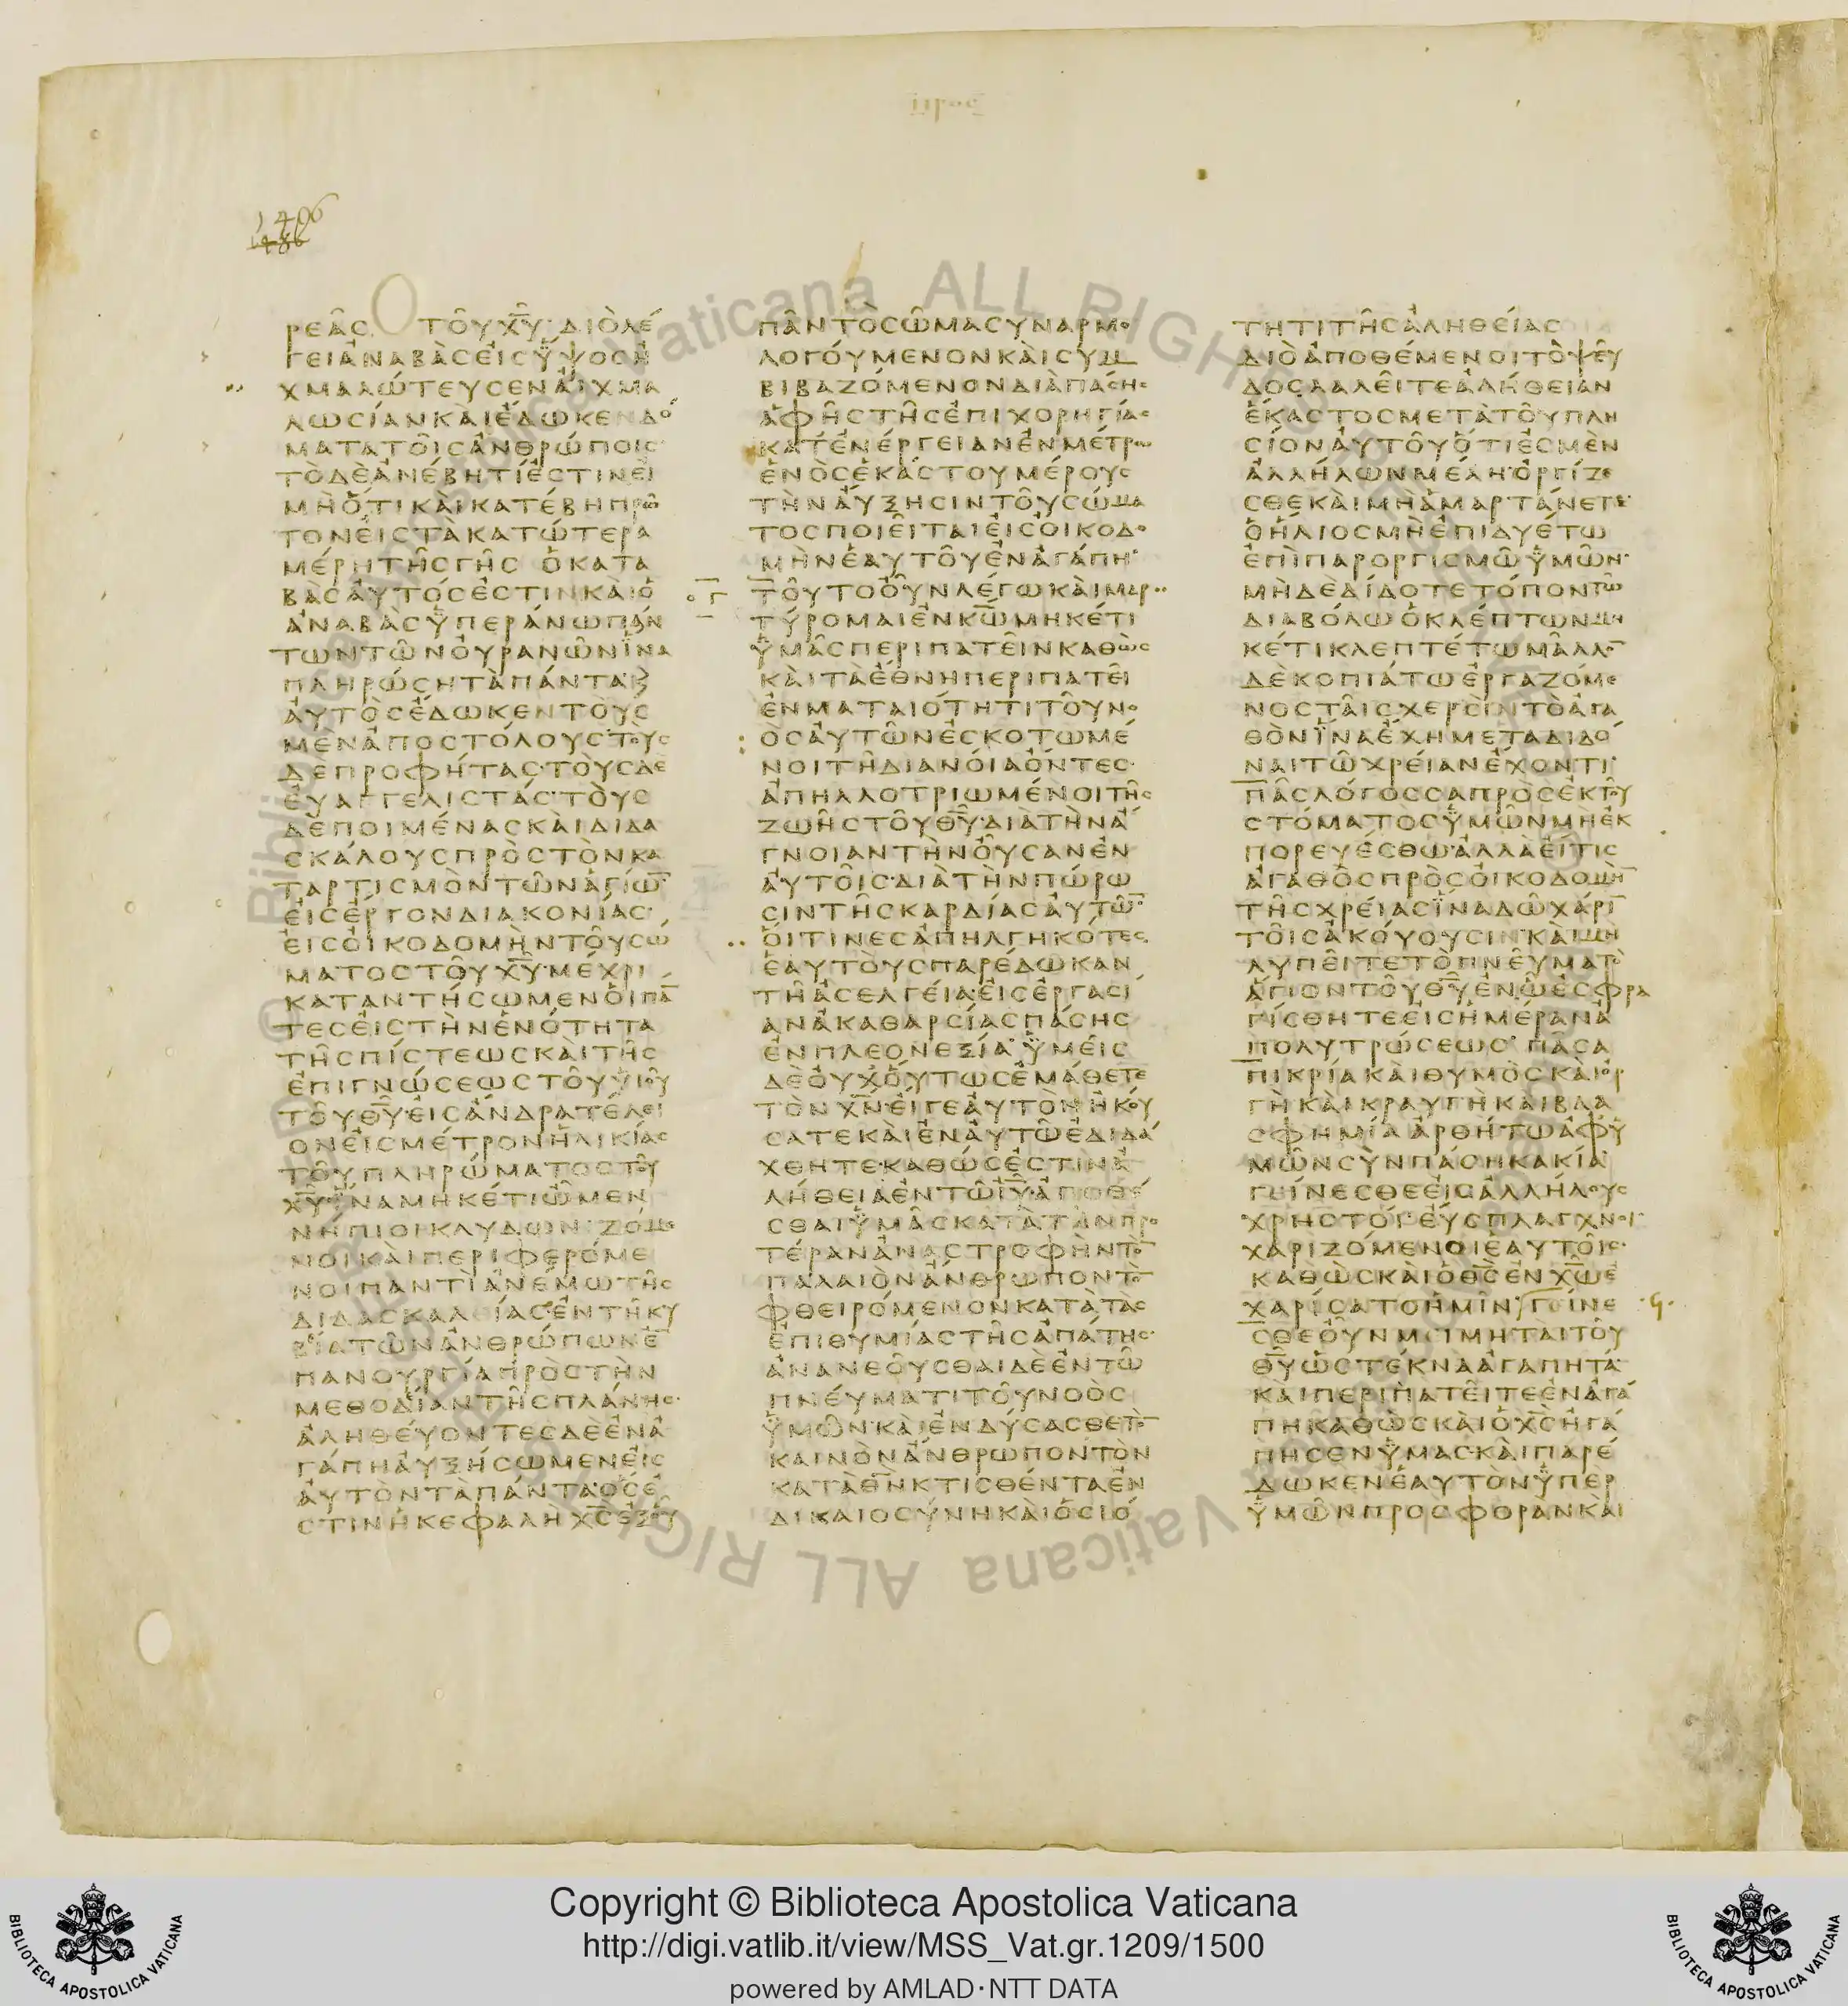 1406
ρεᾶς τοῦ χ̅υ̅· διὸ λέ
γει ἀναβὰς εἰς ὕψος ᾐ
χμαλώτευσεν αἰχμα
λωσίαν καὶ ἔδωκεν δό
ματα τοῖς ἀνθρώποις
τὸ δὲ ἀνέβη τί ἐστιν εἰ
μὴ ὅτι καὶ κατέβη πρῶ
τον εἰς τὰ κατώτερα
μέρη τῆς γῆς ὁ κατα
βὰς αὐτός ἐστιν καὶ ὁ
ἀναβὰς ὑπεράνω πάν
των τῶν οὐρανῶν ἵνα
πληρώσῃ τὰ πάντα κ̀
αὐτὸς ἔδωκεν τοὺς
μὲν ἀποστόλους τοὺς
δὲ προφήτας· τοὺς δὲ
εὐαγγελιστάς· τοὺς
δὲ ποιμένας καὶ διδα
σκάλους πρὸς τὸν κα
ταρτισμὸν τῶν ἁγίω̅
εἰς ἔργον διακονίας·
εἰς οἰκοδομὴν τοῦ σώ
ματος τοῦ χ̅υ̅· μέχρι
καταντήσωμεν οἱ πά̅
τες εἰς τὴν ἑνότητα
τῆς πίστεως καὶ τῆς
ἐπιγνώσεως τοῦ υἱοῦ
τοῦ θ̅υ̅· εἰς ἄνδρα τέλει
ον εἰς μέτρον ἡλικίας
τοῦ πληρώματος τοῦ
χ̅υ̅· ἵνα μηκέτι ὦμεν
νήπιοι κλυδωνιζόμε
νοι καὶ περιφερόμε
νοι παντὶ ἀνέμῳ τῆς
διδασκαλίας ἐν τῇ κυ
βίᾳ τῶν ἀνθρώπων ἐ̅
πανουργίᾳ πρὸς τὴν
μεθοδίαν τῆς πλάνης·
ἀληθεύοντες δὲ ἐν ἀ
γάπῃ αὐξήσωμεν εἰς
αὐτὸν τὰ πάντα· ὅς ἐ
στιν ἡ κεφαλὴ χ̅ς̅ ἐξ οὗ
πᾶν τὸ σῶμα συναρμο
λογούμενον καὶ συμ
βιβαζόμενον διὰ πάσης
ἁφῆς τῆς ἐπιχορηγίας
κατ' ἐνέργειαν ἐν μέτρῳ
ἑνὸς ἑκάστου μέρους
τὴν αὔξησιν τοῦ σώμα
τος ποιεῖται εἰς οἰκοδο
μὴν ἑαυτοῦ ἐν ἀγάπῃ·
τοῦτο οὖν λέγω καὶ μαρ
τύρομαι ἐν κ̅ω̅ μηκέτι
ὑμᾶς περιπατεῖν καθὼς
καὶ τὰ ἔθνη περιπατεῖ
ἐν ματαιότητι τοῦ νο
ὸς αὐτῶν ἐσκοτωμέ
νοι τῇ διανοίᾳ ὄντες·
ἀπηλλοτριωμένοι τῆς
ζωῆς τοῦ θ̅υ̅· διὰ τὴν ἄ
γνοιαν τὴν οὖσαν ἐν
αὐτοῖς· διὰ τὴν πώρω
σιν τῆς καρδίας αὐτῶ̅·
οἵτινες ἀπηλγηκότες
ἑαυτοὺς παρέδωκαν
τῇ ἀσελγείᾳ· εἰς ἐργασί
αν ἀκαθαρσίας πάσης
ἐν πλεονεξίᾳ· ὑμεῖς
δὲ οὐχ οὕτως ἐμάθετε
τὸν χ̅ν̅· εἴγε αὐτὸν ἠκού
σατε καὶ ἐν αὐτῷ ἐδιδά
χθητε· καθώς ἐστιν ἀ
λήθεια ἐν τῷ ι̅υ̅· ἀποθέ
σθαι ὑμᾶς κατὰ τὴν προ
τέραν ἀναστροφὴν τὸ̅
παλαιὸν ἄνθρωπον τὸ̅
φθειρόμενον κατὰ τὰς
ἐπιθυμίας τῆς ἀπάτης·
ἀνανεοῦσθαι δὲ ἐν τῷ
πνεύματι τοῦ νοὸς
ὑμῶν· καὶ ἐνδύσασθε τὸ̅
καινὸν ἄνθρωπον τὸν
κατὰ θ̅ν̅ κτισθέντα ἐν
δικαιοσύνῃ καὶ ὁσιό
τητι τῆς ἀληθείας
διὸ ἀποθέμενοι τὸ ψεῦ
δος λαλεῖτε ἀλήθειαν
ἕκαστος μετὰ τοῦ πλη
σίον αὐτοῦ ὅτι ἐσμὲν
ἀλλήλων μέλη· ὀργίζε
σθε καὶ μὴ ἁμαρτάνετε·
ὁ ἥλιος μὴ ἐπιδυέτω
ἐπὶ παροργισμῷ ὑμῶν·
μηδὲ δίδοτε τόπον τῷ
διαβόλῳ ὁ κλέπτων μη
κέτι κλεπτέτω μᾶλλο̅
δὲ κοπιάτω ἐργαζόμε
νος ταῖς χερσὶν τὸ ἀγα
θὸν ἵνα ἔχῃ μεταδιδό
ναι τῷ χρείαν ἔχοντι·
πᾶς λόγος σαπρὸς ἐκ τοῦ
στόματος ὑμῶν μὴ ἐκ
πορευέσθω· ἀλλὰ εἴ τις
ἀγαθὸς πρὸς οἰκοδομὴ̅
τῆς χρείας ἵνα δῷ χάρι̅
τοῖς ἀκούουσιν· καὶ μὴ
λυπεῖτε τὸ πνεῦμα τὸ
ἅγιον τοῦ θ̅υ̅ ἐν ᾧ ἐσφρα
γίσθητε εἰς ἡμέραν ἀ
πολυτρώσεως· πᾶσα
πικρία καὶ θυμὸς καὶ ὀρ
γὴ καὶ κραυγὴ καὶ βλα
σφημία ἀρθήτω ἀφ' ὑ
μῶν σὺν πάσῃ κακίᾳ·
γείνεσθε εἰς ἀλλήλους
χρηστοί· εὔσπλαγχνοι·
χαριζόμενοι ἑαυτοῖς·
καθὼς καὶ ὁ θ̅ς̅ ἐν χ̅ω̅ ἐ
χαρίσατο ἡμῖν· γείνε
σθε οὖν μιμηταὶ τοῦ
θ̅υ̅ ὡς τέκνα ἀγαπητά·
καὶ περιπατεῖτε ἐν ἀγά
πῃ καθὼς καὶ ὁ χ̅ς̅ ἠγά
πησεν ὑμᾶς· καὶ παρέ
δωκεν ἑαυτὸν ὑπερ
ὑμῶν προσφορὰν καὶ
Copyright © Biblioteca Apostolica Vaticana
http://digi.vatlib.it/view/MSS_Vat.gr.1209/1500
powered by AMLAD·NTT DATA
BIBLIOTECA APOSTOLICA VATICANA
BIBLIOTECA APOSTOLICA VATICANA